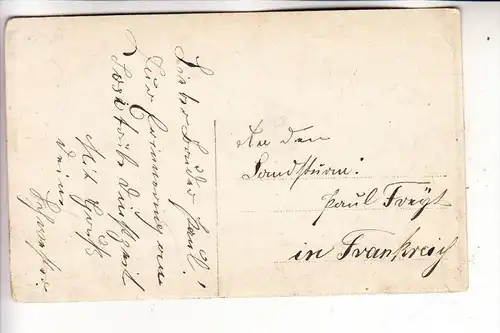 Lieber Bruder Paul!
Zur Erinnerung an
Mit Gruß
deine
Schwester.
An den
Landsturm.
Paul Freyt
in Frankreich